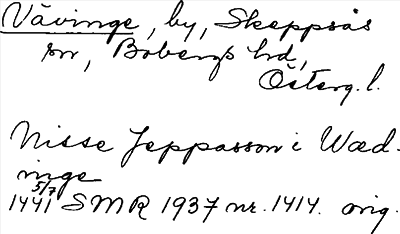 Vävinge, by, Skeppsås
sn, Bobergs hd,
Österg. l.
Nisse Jeppasson i Wæd-
inge
5/7
1441 SMR 1937 nr. 1414. orig.